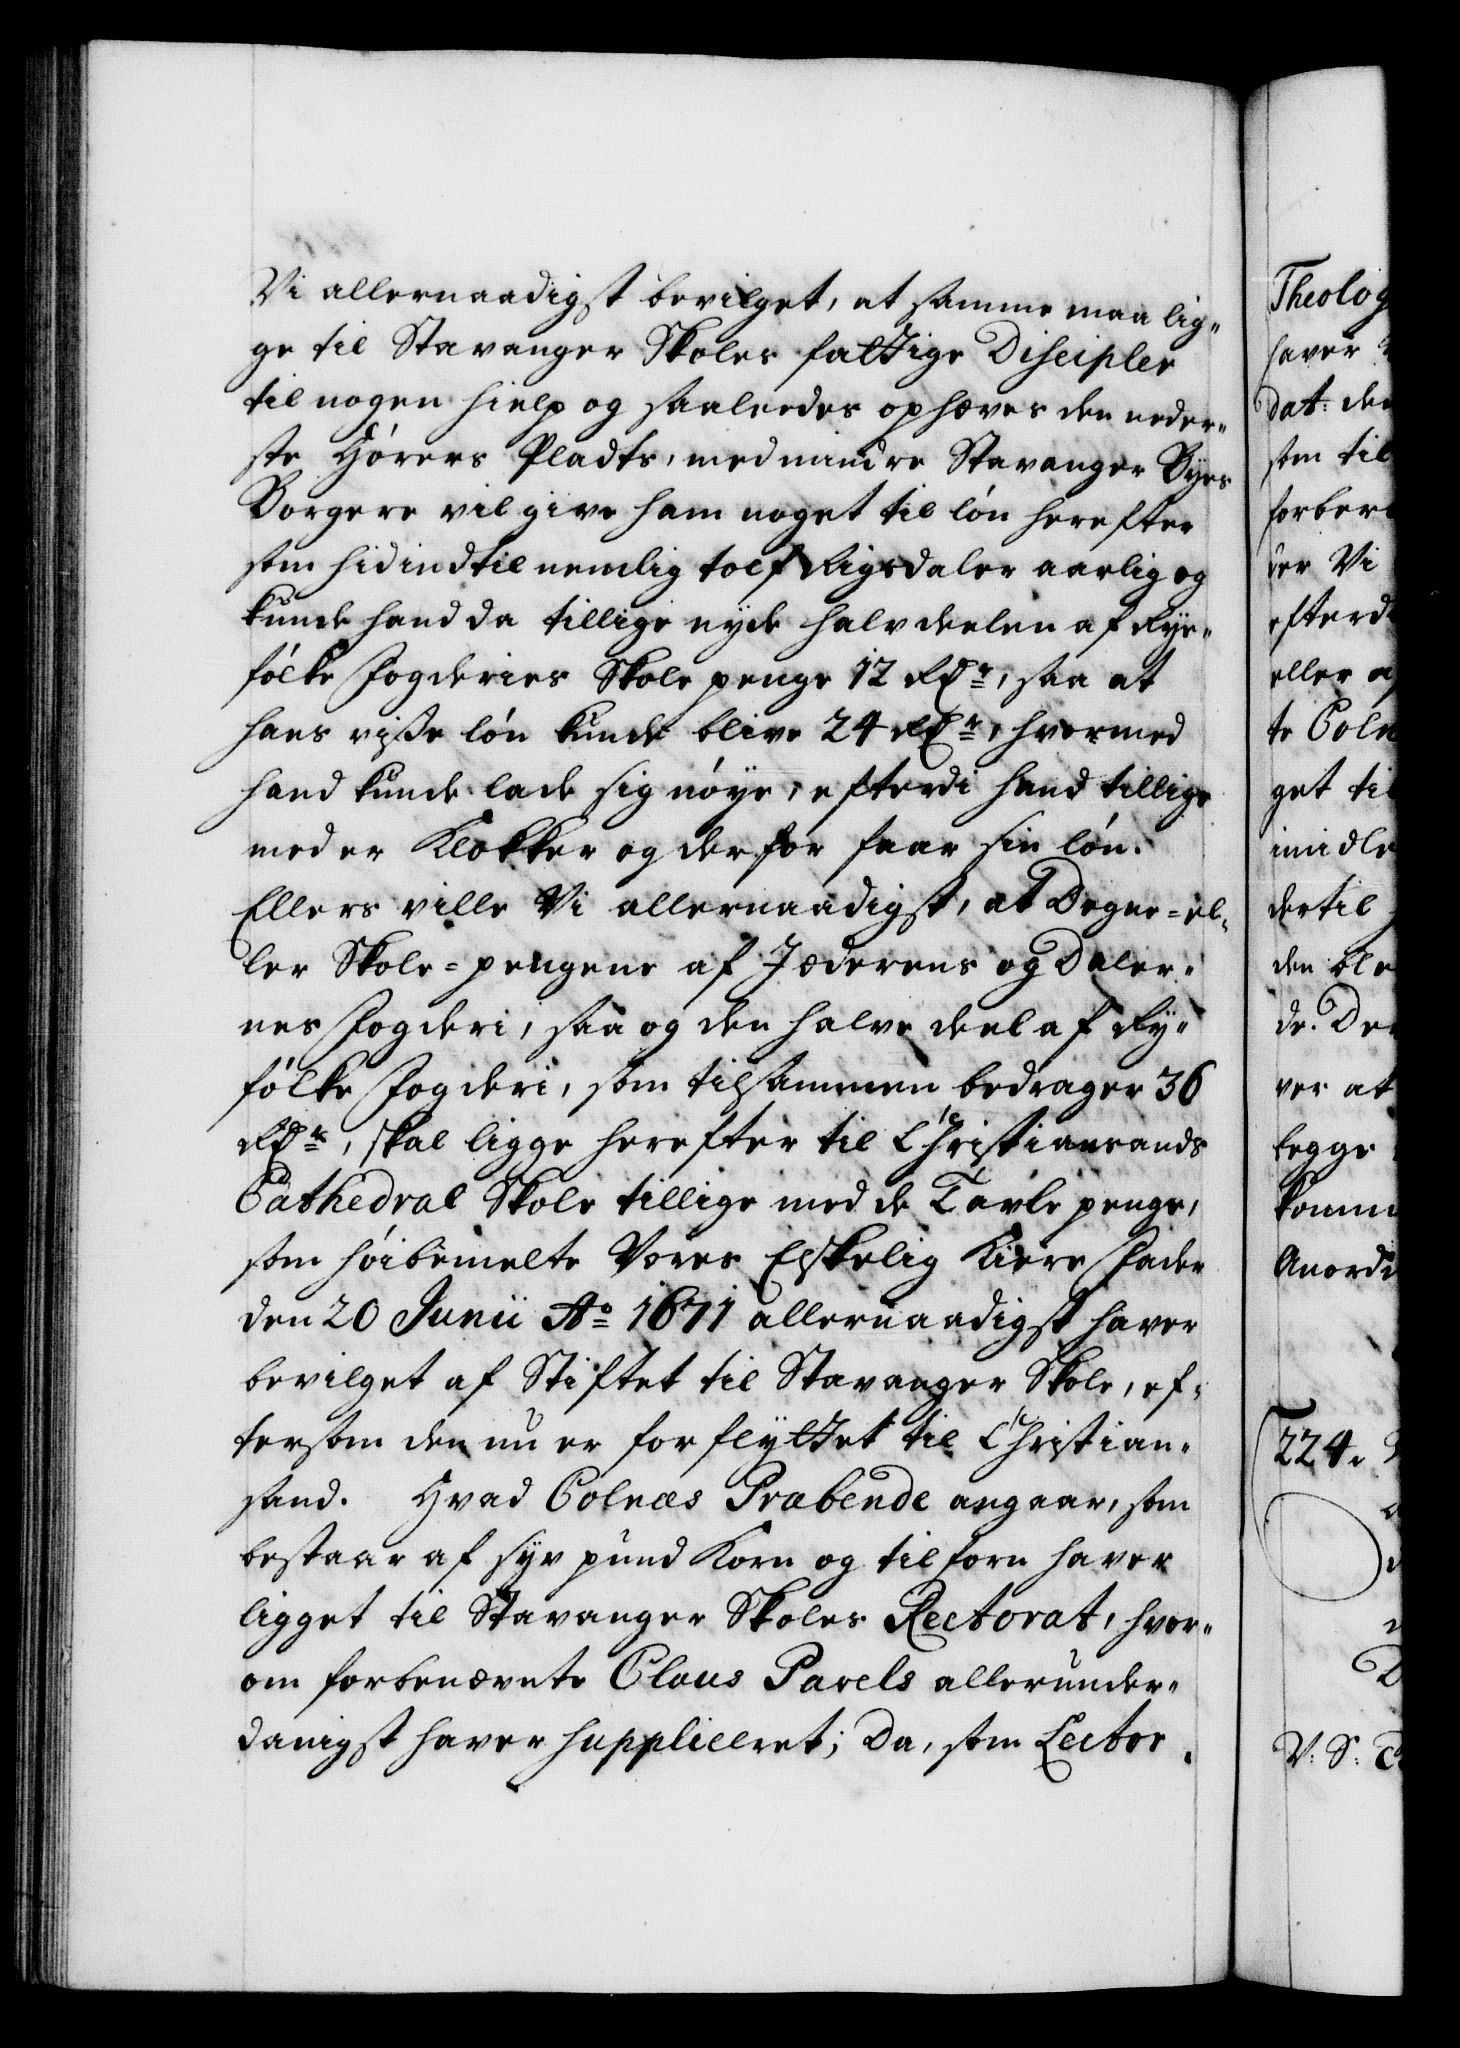 Vi allernaadigst bevilget, at samme maa lig-
ge til Stavanger Skoles fattige Discipler
til nogen hielp og saaledes ophæves den neder-
ste Hörers Pladts, med mindre Stavanger Byes
Borgere vil give ham noget til lön herefter
som hidindtil nemlig tolf Rigsdaler aarlig og
kunde hand da tillige nyde halvdeelen af Rye-
fölke Fogderies Skole penge 12 Rdr, saa at
hans visse lön kunde blive 24 Rdr, hvormed
hand kunde lade sig nöye, efterdi hand tillige
med er Klokker og derfor faar sin lön.
Ellers ville Vi allernaadigst, at Degne- el-
ler Skole-pengene af Jæderens og Daler-
nes Fogderi, saa og den halve deel af Ry-
fölke Fogderi, som tilsammen bedrager 36
Rdr, skal ligge herefter til Christiansands
Cathedral Skole tillige med de Tavle penge,
som höibemelte Vores Elskelig Kiere Fader
den 20 Junii Ao 1671 allernaadigst haver
bevilget af Stiftet til Stavanger Skole, ef-
tersom den nu er forflyttet til Christian-
sand. Hvad Colnæs Præbende angaar, som
bestaar af syv pund Korn og tilforn haver
ligget til Stavanger Skoles Rectorat, hvor-
om forbenævnte Claus Pavels allerunder-
danigst haver supplicert; Da, som Lector
Theolog
haver
dat: den
som til
forber
der Vi
efterd
eller a
te Coln
get til
imidle
dertil
den ble
de. De
ver at
begge
komm
Anord
224.
V: S: